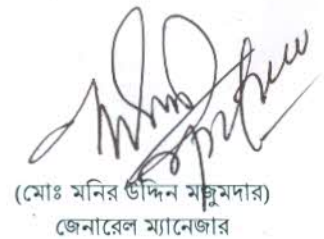 (মোঃ মনির উদ্দিন মজুমদার)
জেনারেল ম্যানেজার